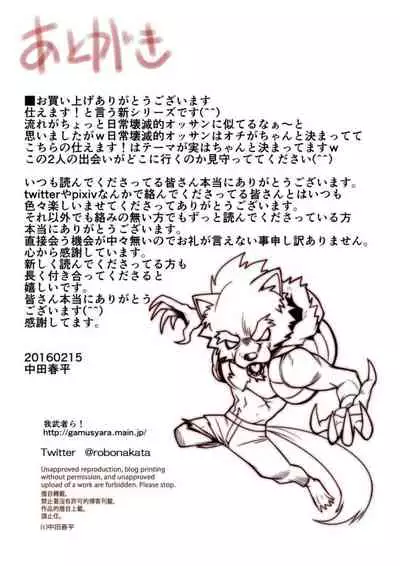 あとがき
■お買い上げありがとうございます
仕えます！と言う新シリーズです(^^)
流れがちょっと日常壊滅的オッサンに似てるなぁ～と
思いましたがｗ日常壊滅的オッサンはオチがちゃんと決まってて
こちらの仕えます！はテーマが実はちゃんと決まってますｗ
この2人の出会いがどこに行くのか見守っててください(^^)
いつも読んでくださってる皆さん本当にありがとうございます。
twitterやpixivなんかで絡んでくださってる皆さんとはいつも
色々楽しいませてくださってありがとうございます。
それ以外でも絡みの無い方でもずっと読んでくださっている方
本当にありがとうございます。
直接会う機会が中々無いのでお礼が言えない事申し訳ありません。
心から感謝しています。
新しく読んでくださってる方も
長く付き合ってくださると
嬉しいです。
皆さん本当にありがとう
ございます(^^)
感謝してます。
20160215
中田春平
我武者ら！
http://gamusyara.main.jp/
Twitter　@robonakata
Unapproved reproduction, blog printing
without permission, and unapproved
upload of a work are forbidden. Please stop.
擅自轉載。
禁止著沒有許可的博客刊載，
作品的擅自上載。
請止住。
(c)中田春平